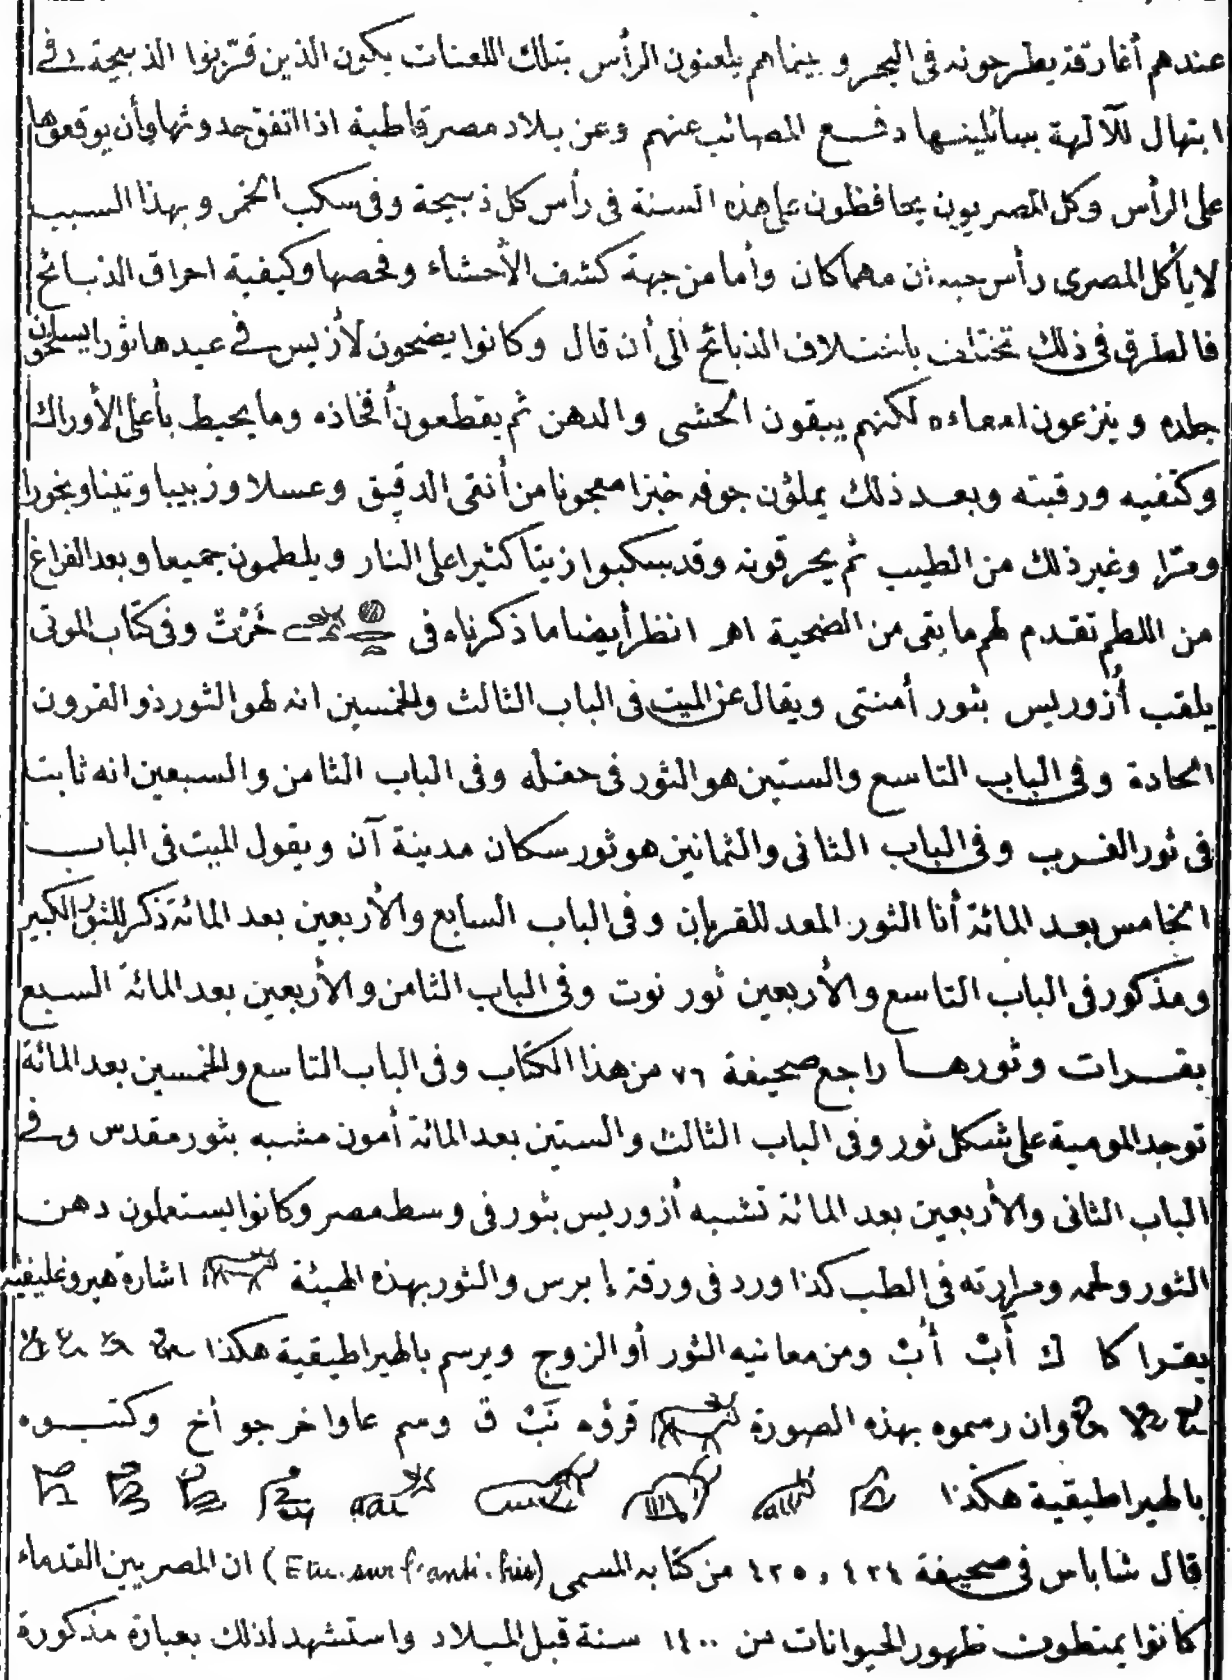 عندهم أغارقة يطرحونه فى البحر وبينما هم يلعنون الرأس بتلك اللعنات يكون الذين قرّبوا الذبيحة فى
ابتهال للآلهة سائلينها دفع المصائب عنهم وعن بلاد مصر قاطبة اذا اتفق حدوثها وأن يوقعوها
على الرأس وكل المصريون يحافظون على هذه السنة فى رأس كل ذبيحة وفى سكب الخمر وبهذا السبب
لا يأكل المصرى رأس حيوان مهما كان وأما من جهة كشف الأحشاء وفحصها وكيفية احراق الذبائح
فالطرق فى ذلك تختلف باختلاف الذبائح الى أن قال وكانوا يضحون لأزيس فى عيدها ثورا يسلخون
جلده وينزعون امعاءه لكنهم يبقون الحشى والدهن ثم يقطعون أفخاذه وما يحيط بأعلى الأوراك
وكتفيه ورقبته وبعد ذلك يملئون جوفه خبزا معجونا من أنقى الدقيق وعسلا وزبيبا وتينا وبخورا
ومرّا وغير ذلك من الطيب ثم يحرقونه وقد سكبوا زيتا كثيرا على النار ويلطمون جميعا وبعد الفراغ
من اللطم تقدم لهم ما بقى من الضحية اهـ انظر أيضا ما ذكرناه فى خَرْتْ وفى كتاب الموتى
يلقب أزوريس بثور أمنتى ويقال عن الميت فى الباب الثالث والخمسين انه لهو الثور ذو القرون
الحادة وفى الباب التاسع والستين هو الثور فى حقله وفى الباب الثامن والسبعين انه ثابت
فى ثور الغرب وفى الباب الثانى والثمانين هو ثور سكان مدينة آن ويقول الميت فى الباب
الخامس بعد المائة أنا الثور المعد للقربان وفى الباب السابع والأربعين بعد المائة ذكر للثور الكبير
ومذكور فى الباب التاسع والأربعين ثور نوت وفى الباب الثامن والأربعين بعد المائة السبع
بقرات وثورها راجع صحيفة ٧٦ من هذا الكتاب وفى الباب التاسع والخمسين بعد المائة
توجد المومية على شكل ثور وفى الباب الثالث والستين بعد المائة أمون مشبه بثور مقدس وفى
الباب الثانى والأربعين بعد المائة تشبه أزوريس بثور فى وسط مصر وكانوا يستعملون دهن
الثور ولحمه ومرارته فى الطب كذا ورد فى ورقة إبرس والثور بهذه الهيئة اشارة هيروغليفية
يقرا كا ك أَبْ أُبْ ومن معانيه الثور أو الزوج ويرسم بالهيراطيقية هكذا
وان رسموه بهذه الصورة قرؤه نَبْ ق وسم عاوا خر جو أخ وكتبوه
بالهيراطيقية هكذا
قال شاباس فى صحيفة ٤٢٤ و ٤٢٥ من كتابه المسمى (Etu. sur l'anti. his) ان المصريين القدماء
كانوا يمتطون ظهور الحيوانات من ١٤٠٠ سنة قبل الميلاد واستشهد لذلك بعبارة مذكورة